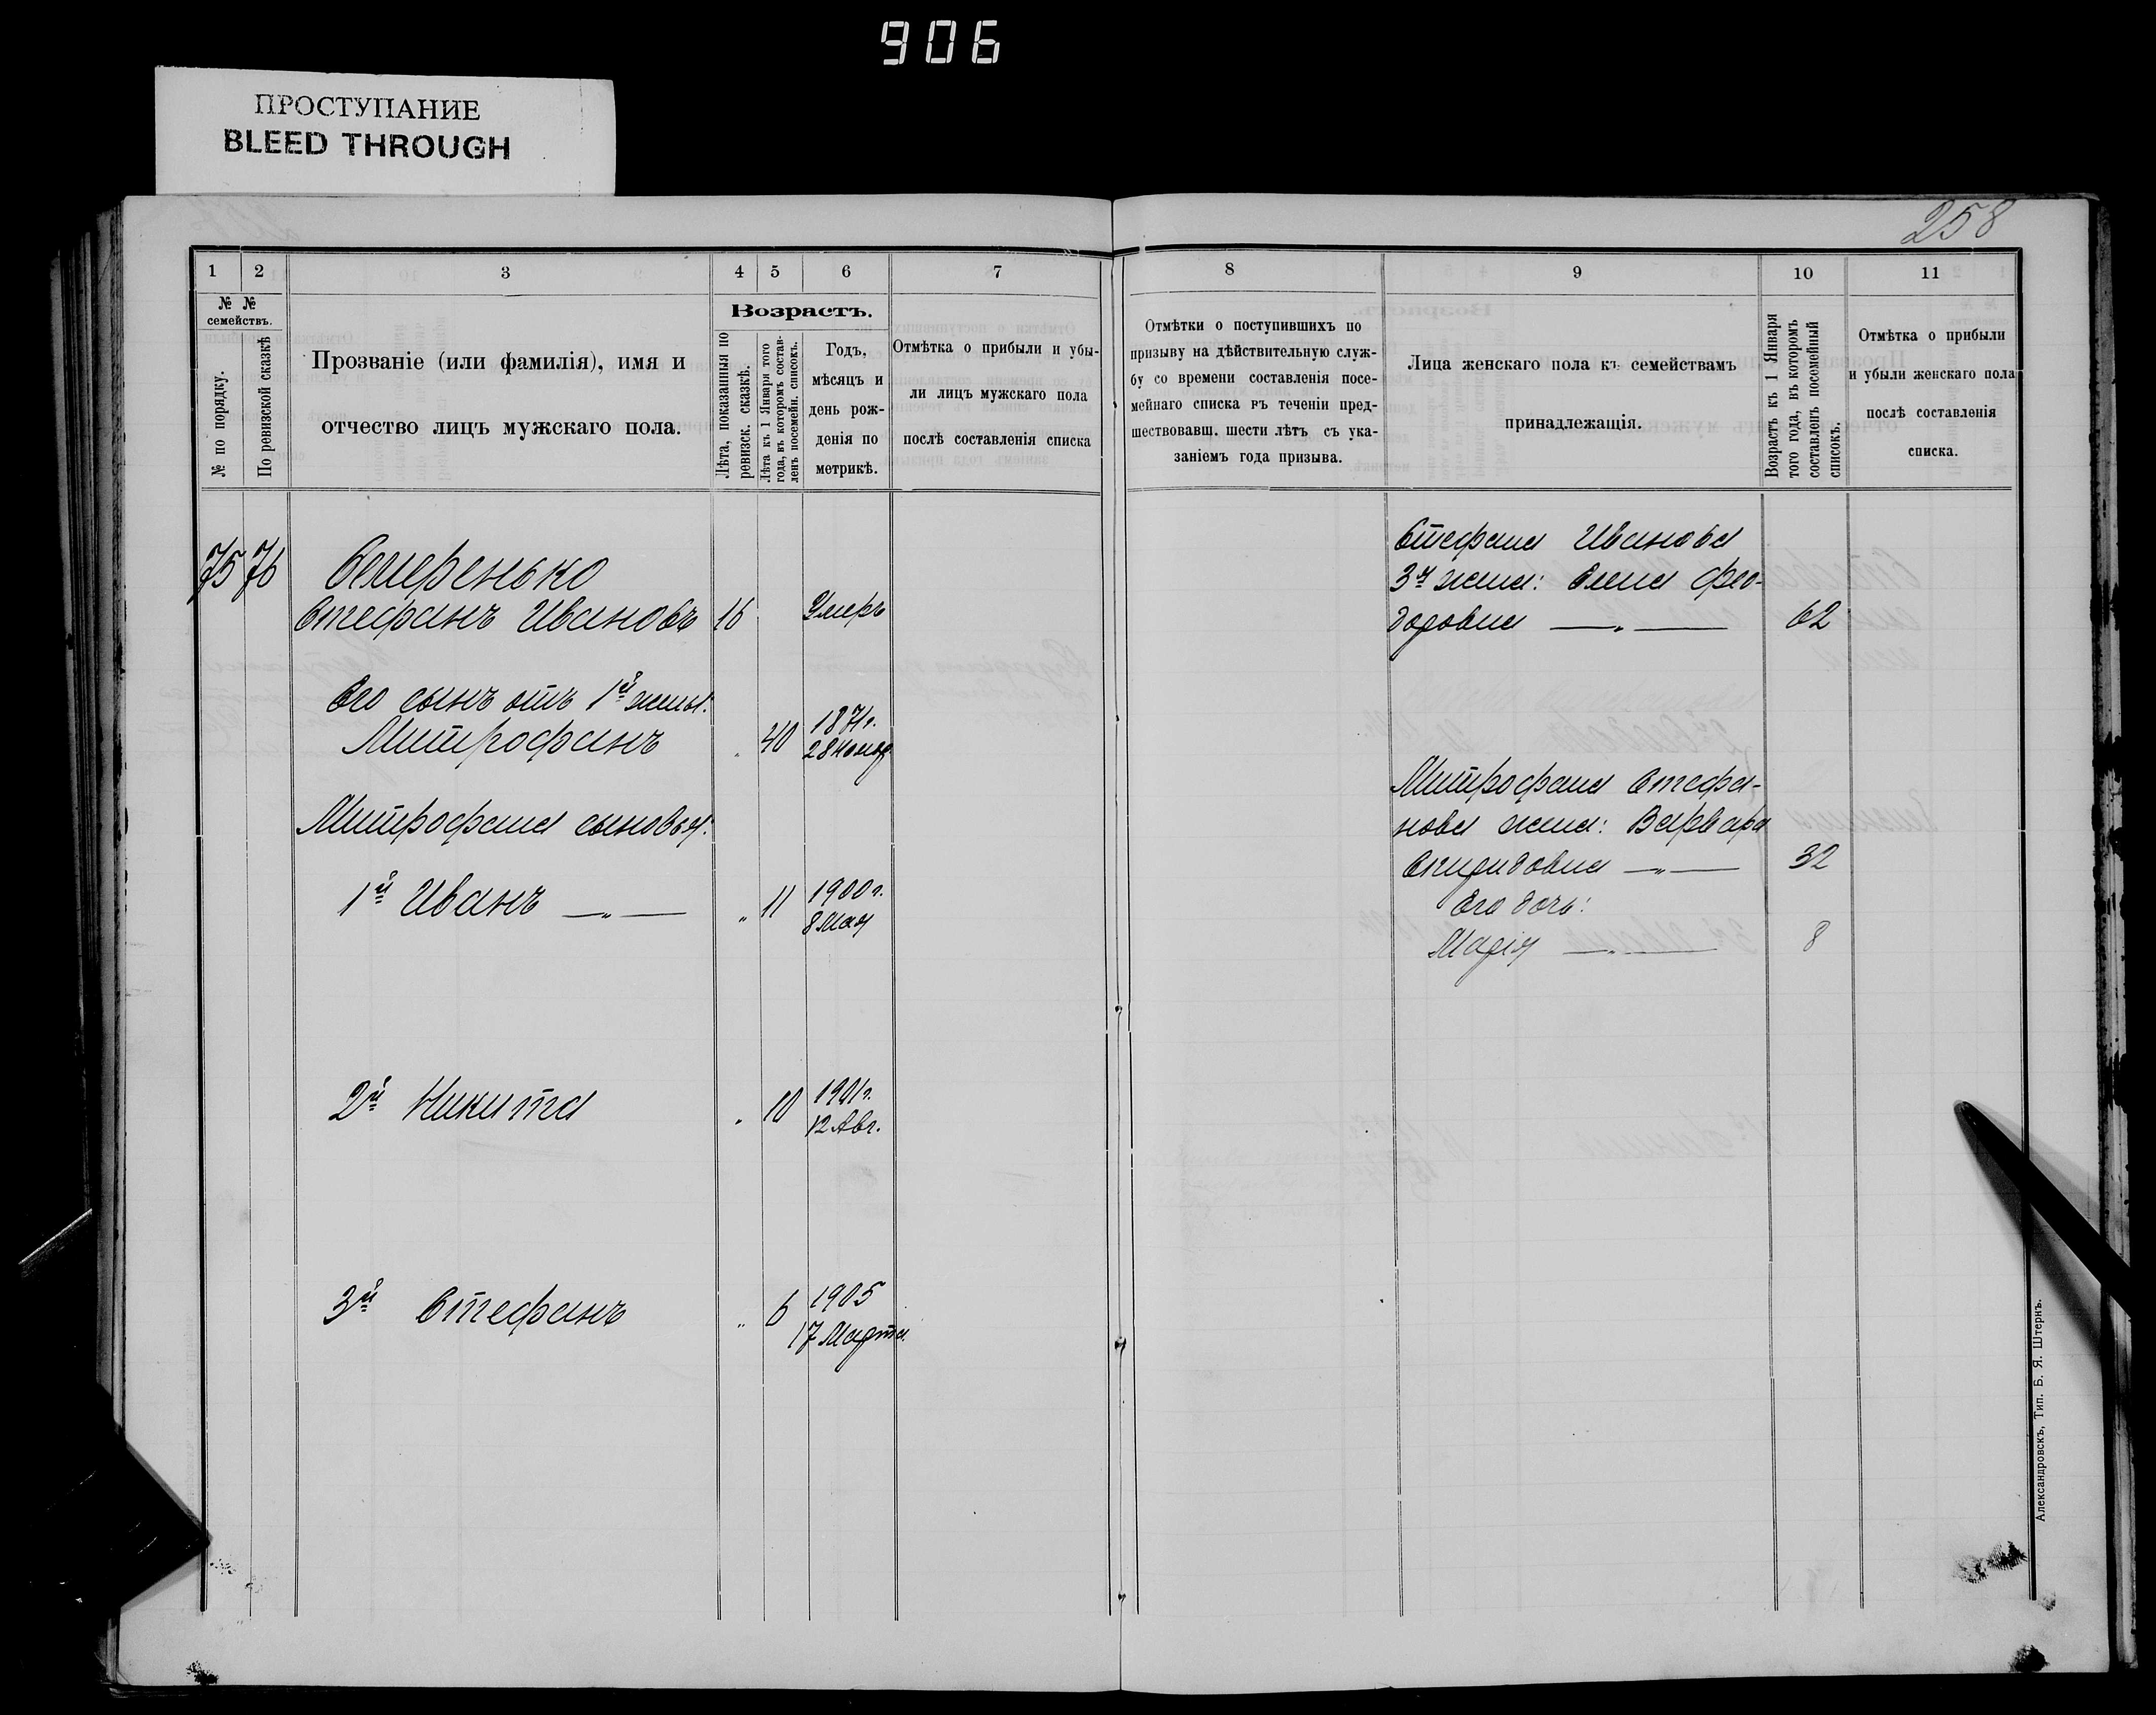 906
ПРОСТУПАНИЕ
BLEED THROUGH
258
1 2 3 4 5 6 7 8 9 10 11
№ №
семействъ.
№ по порядку.
По ревизской сказкѣ
Прозваніе (или фамилія), имя и
отчество лицъ мужскаго пола.
Возрастъ.
Лѣта, показанныя по
ревизск. сказкѣ.
Лѣта къ 1 Января того
года, въ которомъ состав-
ленъ посемейн. списокъ.
Годъ,
мѣсяцъ и
день рож-
денія по
метрикѣ.
Отмѣтка о прибыли и убы-
ли лицъ мужскаго пола
послѣ составленія списка
Отмѣтки о поступившихъ по
призыву на дѣйствительную служ-
бу со времени составленія посе-
мейнаго списка въ теченіи пред-
шествовавш. шести лѣтъ съ ука-
заніемъ года призыва.
Лица женскаго пола къ семействамъ
принадлежащія.
Возрастъ къ 1 Января
того года, въ которомъ
составленъ посемейный
списокъ.
Отмѣтка о прибыли
и убыли женскаго пола
послѣ составленія
списка.
75 76 Семеренько
Стефанъ Ивановъ 16 Умеръ
Его сынъ отъ 1й жены:
Митрофанъ " 40 1871г.
28 Нояб
Митрофана сыновья:
1й Иванъ —„— " 11 1900г.
8 Мая
2й Никита " 10 1901г.
12 Авг.
3й Стефанъ " 6 1905
17 Марта
Стефана Иванова
3я жена: Елена Фео-
доровна —„— 62
Митрофана Стефа-
нова жена: Варвара
Спиридовна —„— 32
Его дочь:
Марія —„— 8
Александровскъ, Тип. Б. Я. Штернъ.